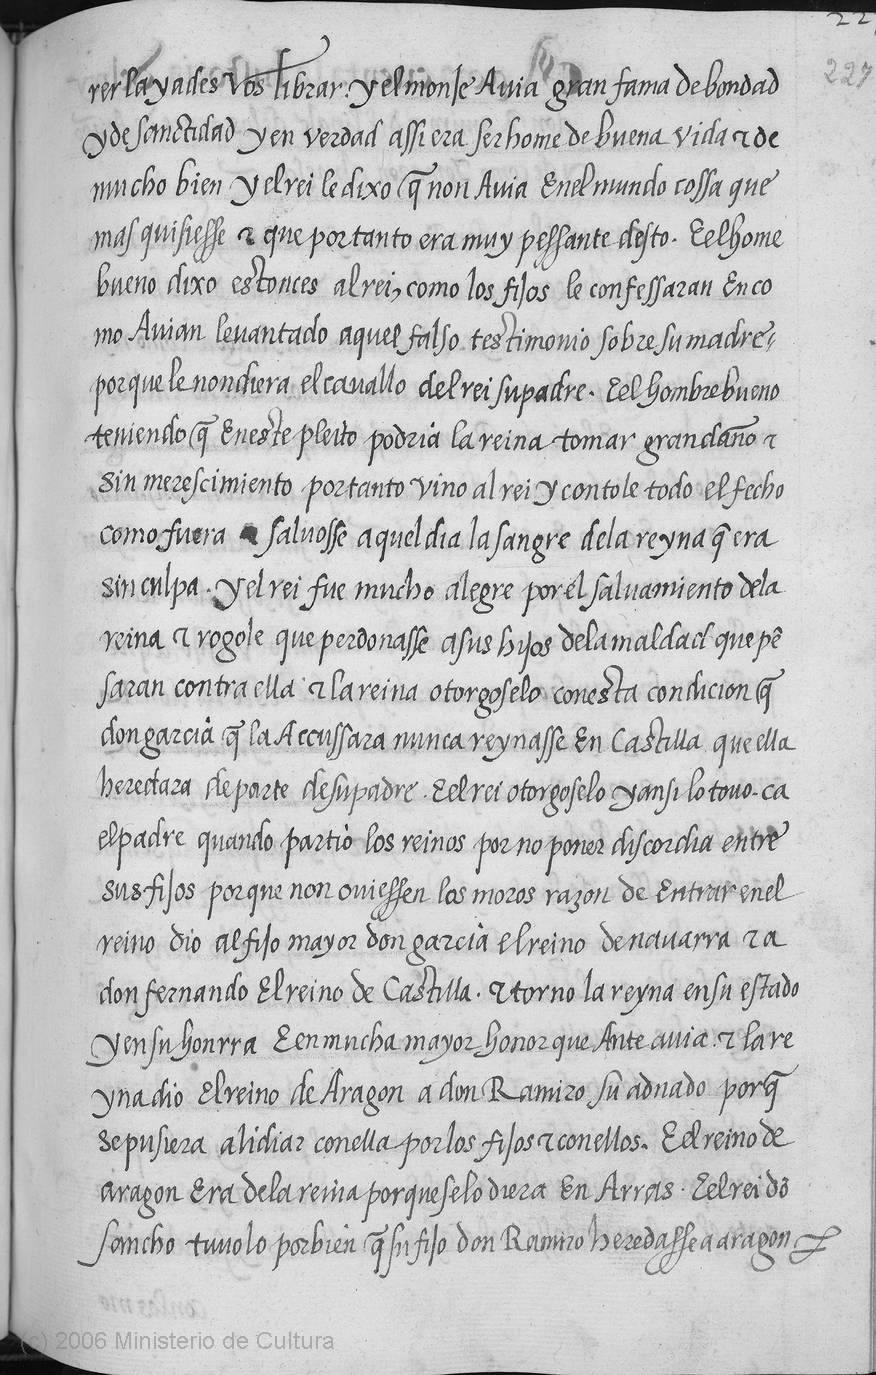 22
227
rer la yades vos librar. y el monje Avia gran fama de bondad
y de sanctidad y en verdad assi era ser home de buena vida τ de
mucho bien y el rei le dixo q̄ non Avia En el mundo cossa que
mas quisiesse τ que por tanto era muy pessante desto. E el home
bueno dixo estonces al rei, como los fijos le confessaran En co
mo Avian levantado aquel falso testimonio sobre su madre,
porque le non diera el cavallo del rei su padre. E el hombre bueno
teniendo q̄ En este pleito podria la reina tomar gran daño τ
sin merescimiento por tanto vino al rei y contole todo el fecho
como fuera salvosse aquel dia la sangre de la reyna q̄ era
sin culpa. y el rei fue mucho alegre por el salvamiento de la
reina τ rogole que perdonasse a sus hijos de la maldad que pē
saran contra ella τ la reina otorgoselo con esta condicion q̄
don garcia q̄ la Accussara nunca reynasse En Castilla que ella
heredara de parte de su padre. E el rei otorgoselo y ansi lo tovo. ca
el padre quando partio los reinos por no poner discordia entre
sus fijos porque non oviessen los moros razon de Entrar en el
reino dio al fijo mayor don garcia el reino de navarra τ a
don fernando El reino de Castilla. τ torno la reyna en su estado
y en su honrra E en mucha mayor honor que Ante avia. τ la re
yna dio El reino de Aragon a don Ramiro su adnado porq̄
se pusiera a lidiar con ella por los fijos τ con ellos. E el reino de
aragon Era de la reina porque selo diera En Arras. E el rei dō
sancho tuvolo por bien q̄ su fijo don Ramiro heredasse a aragon
(c) 2006 Ministerio de Cultura